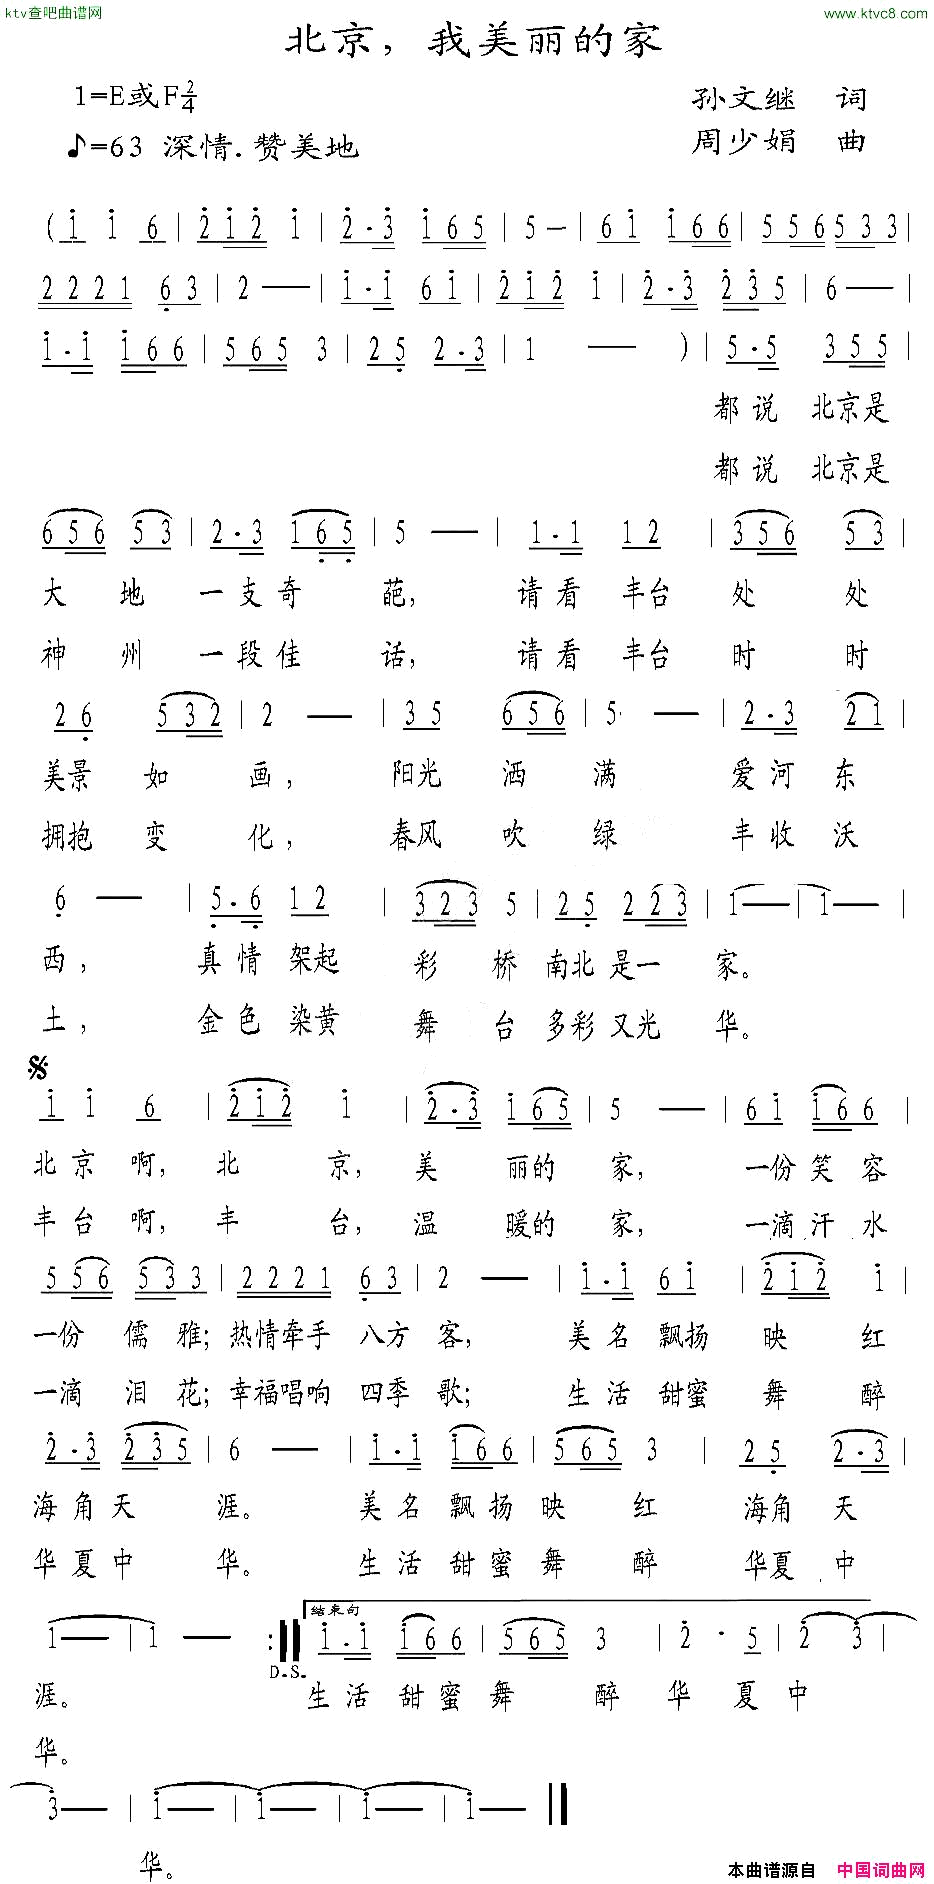 ktv查吧曲谱网 www.ktvc8.com
北京，我美丽的家
1=E或F 2/4 孙文继 词
♪=63 深情.赞美地 周少娟 曲
(i i 6 | 2 i 2 i | 2·3 i 6 5 | 5 — | 6 i i 6 6 | 5 5 6 5 3 3 |
2 2 2 1 6 3 | 2 — | i·i 6 i | 2 i 2 i | 2·3 2 3 5 | 6 — |
i·i i 6 6 | 5 6 5 3 | 2 5 2·3 | 1 — ) | 5·5 3 5 5 |
都说 北京是
都说 北京是
6 5 6 5 3 | 2·3 1 6 5 | 5 — | 1·1 1 2 | 3 5 6 5 3 |
大 地 一支奇 葩， 请看丰台 处 处
神 州 一段佳 话， 请看丰台 时 时
2 6 5 3 2 | 2 — | 3 5 6 5 6 | 5 — | 2·3 2 1 |
美景 如 画， 阳光 洒 满 爱河东
拥抱 变 化， 春风 吹 绿 丰收沃
6 — | 5·6 1 2 | 3 2 3 5 | 2 5 2 2 3 | 1 — | 1 — |
西， 真情架起 彩 桥 南北是一 家。
土， 金色染黄 舞 台 多彩又光 华。
i i 6 | 2 i 2 i | 2·3 i 6 5 | 5 — | 6 i i 6 6 |
北京啊， 北 京， 美 丽的 家， 一份笑容
丰台啊， 丰 台， 温 暖的 家， 一滴汗水
5 5 6 5 3 3 | 2 2 2 1 6 3 | 2 — | i·i 6 i | 2 i 2 i |
一份 儒雅；热情牵手 八方 客， 美名飘扬 映 红
一滴 泪花；幸福唱响 四季 歌； 生活甜蜜 舞 醉
2·3 2 3 5 | 6 — | i·i i 6 6 | 5 6 5 3 | 2 5 2·3 |
海角天 涯。 美名飘扬映 红 海角天
华夏中 华。 生活甜蜜舞 醉 华夏中
结束句
1 — | 1 — :‖ i·i i 6 6 | 5 6 5 3 | 2 · 5 | 2 3 — |
D.S.
涯。 生活甜蜜舞 醉 华 夏中
华。
3 — | i — | i — | i — | i — ‖
华。
本曲谱源自 中国词曲网